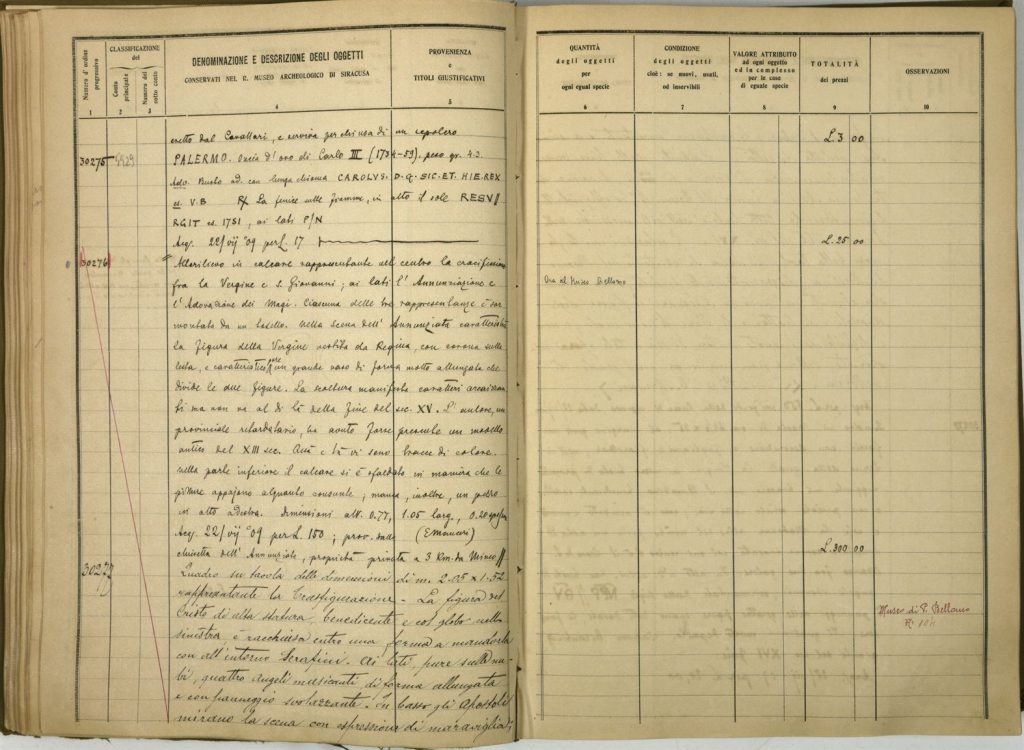 Numero d'ordine progressivo
CLASSIFICAZIONE
del
Conto principale
Numero del sotto conto
DENOMINAZIONE E DESCRIZIONE DEGLI OGGETTI
CONSERVATI NEL R. MUSEO ARCHEOLOGICO DI SIRACUSA
PROVENIENZA
e
TITOLI GIUSTIFICATIVI
1 2 3 4 5
eretto dal Cavallari, e serviva per chiusa di un sepolcro
30275 PALERMO. Oncia d'oro di Carlo III (1734-59). peso gr. 4.3.
Adv. Busto ad. con lunga chioma CAROLVS. D.G. SIC. ET. HIE. REX
es. V.B R) La fenice sulle fiamme, in alto il sole RESV//
RGIT es. 1751, ai lati P/N
Acq. 22/vij °09 per L. 17
30276 Altorilievo in calcare rappresentante nel centro la crocifissione
fra la Vergine e S. Giovanni; ai lati l'Annunziazione e
l'Adorazione dei Magi. Ciascuna delle tre rappresentanze è sor
montata da un Nella scena dell'Annunziata caratteristica
la figura della Vergine vestita da Regina, con corona sulla
testa, e caratteristico pure un grande vaso di forma molto allungata che
divide le due figure. La scultura manifesta caratteri arcaizzan
ti ma non va al di là della fine del sec. XV. L'autore, un
provinciale ritardatario, ha avuto forse presente un modello
antico del XIII sec. Quà e là vi sono tracce di colore.
Nella parte inferiore il calcare si è sfaldato in maniera che le
figure appajono alquanto consunte; manca, inoltre, un pezzo
in alto a destra. Dimensioni alt. 0.77, 1.05 larg., 0.20
Acq. 22/vij °09 per L. 150; prov. dalla
chiesetta dell'Annunziata, proprietà privata a 3 Km. da Mineo//
30277 Quadro su tavola delle dimensioni di m. 2.05 x 1.52
rappresentante la Trasfigurazione - La figura del
Cristo di alta statura, benedicente e col globo nella
sinistra, è racchiusa entro una forma a mandorla
con all'interno Serafini. Ai lati, pure sulle nu-
bi, quattro Angeli musicanti di forma allungata
e con panneggio svolazzante. In basso gli Apostoli
mirano la scena con espressione di maraviglia;
QUANTITÀ
degli oggetti
per
ogni egual specie
CONDIZIONE
degli oggetti
cioè: se nuovi, usati,
od inservibili
VALORE ATTRIBUITO
ad ogni oggetto
ed in complesso
per le cose
di eguale specie
TOTALITÀ
dei prezzi
OSSERVAZIONI
6 7 8 9 10
L. 3 00
L. 25 00
Ora al Museo Bellomo
L. 300 00
Museo di P. Bellomo